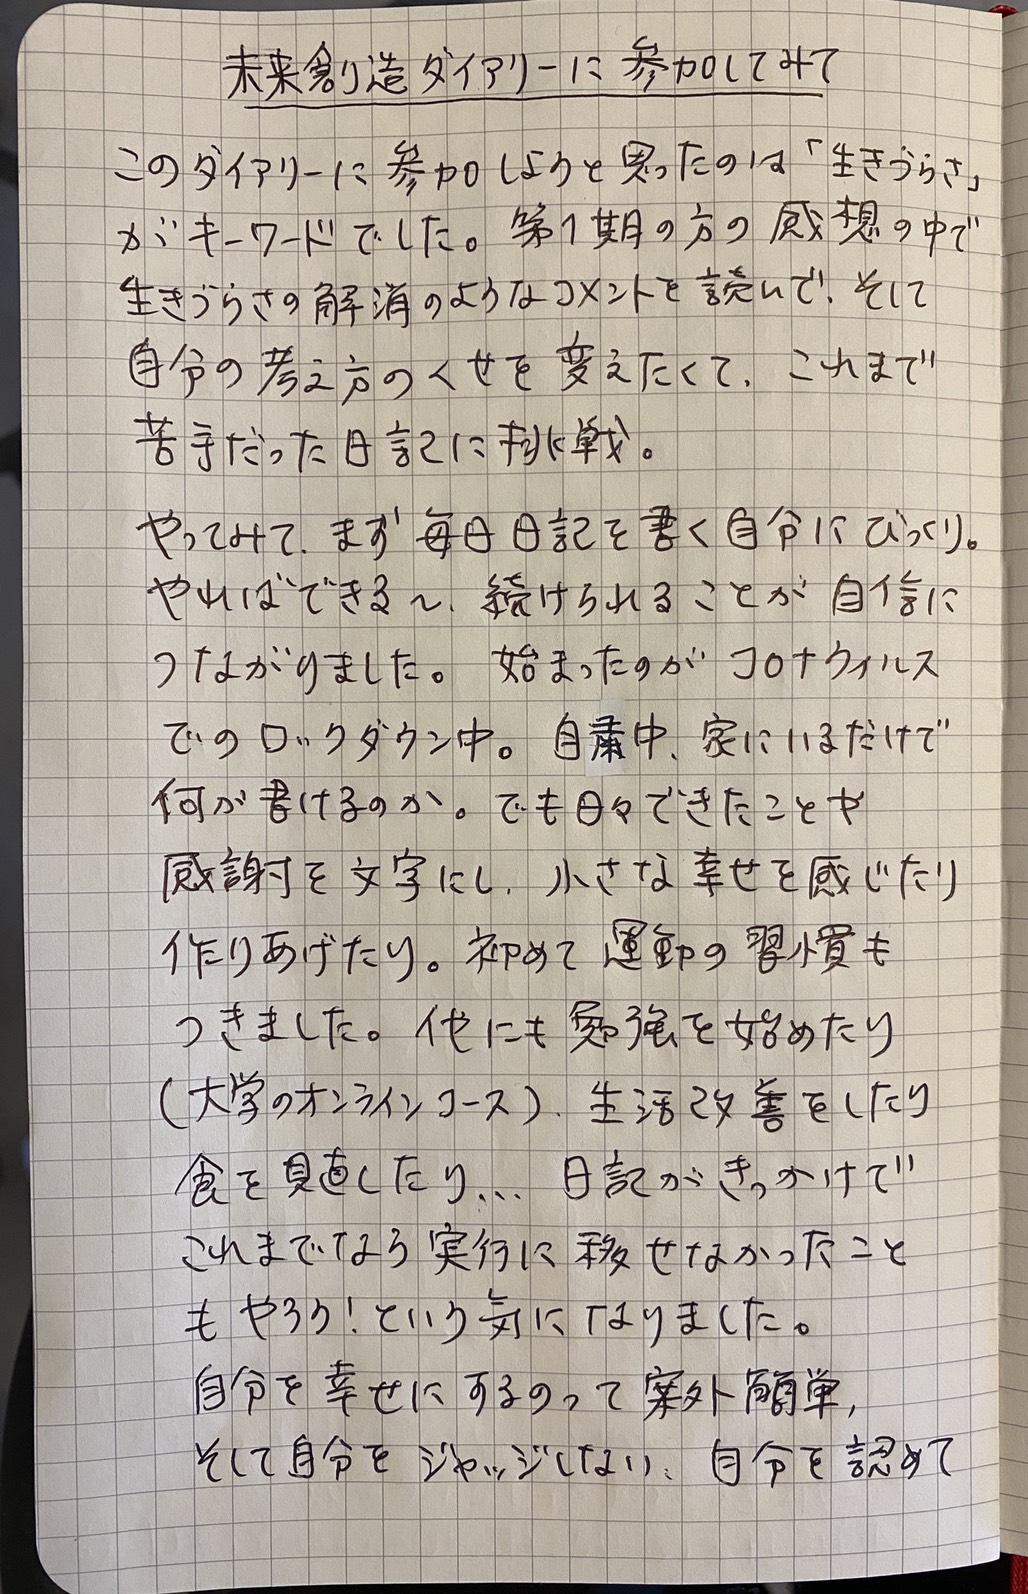 未来創造ダイアリーに参加してみて
このダイアリーに参加しようと思ったのは「生きづらさ」
がキーワードでした。第1期の方の感想の中で
生きづらさの解消のようなコメントを読んで、そして
自分の考え方のくせを変えたくて、これまで
苦手だった日記に挑戦。
やってみて、まず毎日日記を書く自分にびっくり。
やればできる〜、続けられることが自信に
つながりました。始まったのがコロナウィルス
でのロックダウン中。自粛中、家にいるだけで
何が書けるのか。でも日々できたことや
感謝を文字にし、小さな幸せを感じたり
作りあげたり。初めて運動の習慣も
つきました。他にも勉強を始めたり
(大学のオンラインコース)、生活改善をしたり
食を見直したり... 日記がきっかけで
これまでなら実行に移せなかったこと
もやろう!という気になりました。
自分を幸せにするのって案外簡単,
そして自分をジャッジしない、自分を認めて